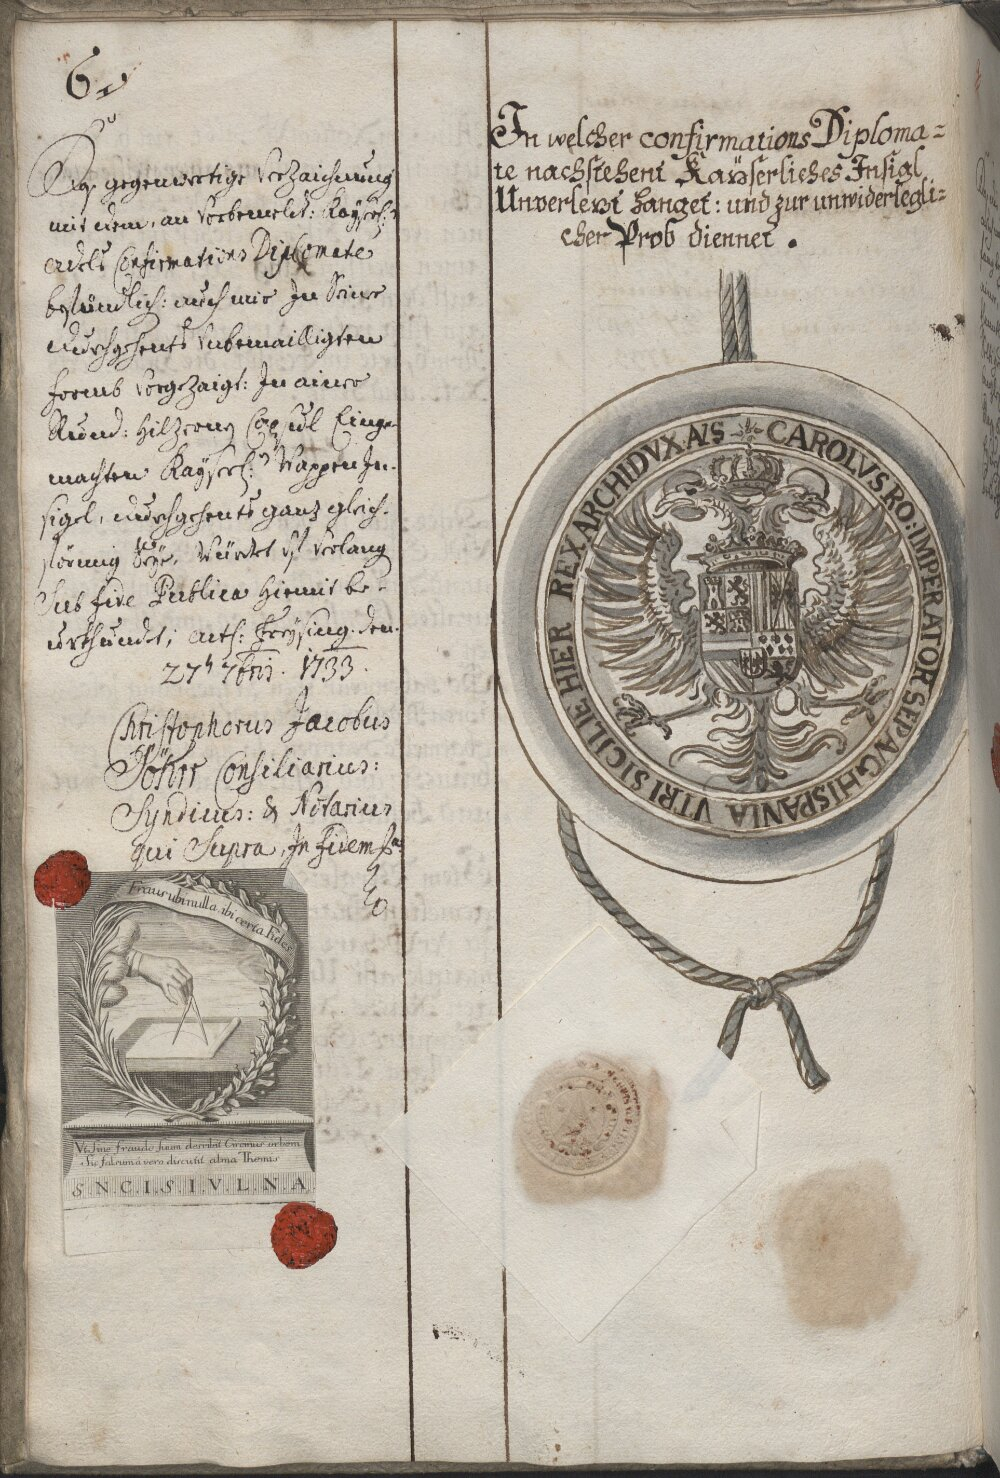 6
Das gegenwertige Verzaichnung
mit dem, an vorbemelt: Kayserl:
adels Confirmations Diplomate
befündlich: auch mir In Seiner
durchgehents unbemailligten
formb vorgezaigt: In ainer
Rund: hilzenen Capsul Einge-
machten Kayserl: Wappen In-
sigel, durchgehents ganz gleich-
förmig seye, würdet uf verlang
Sub fide Publica hiemit be-
urkhundet; act: Freysing den
27t 7bris. 1733.
Christophorus Jacobus
Consiliarius:
Syndicus: & Notarius
qui Supra, In fidem
Fraus ubi nulla, ibi certa Fides
Vt sine fraude suum describit Circinus orbem
Sic falsum a vero discutit alma Themis
S. N. C. I. S. I. V. L. N. A
In welcher confirmations Diploma=
te nachstehent Kaÿserliches Insigl
Unverlezt hanget: und zur unwiderlegli=
cher Prob diennet.
CAROLVS RO: IMPERATOR SEP AVG HISPANIA VTRI SICILIE HIER REX ARCHIDVX A/S